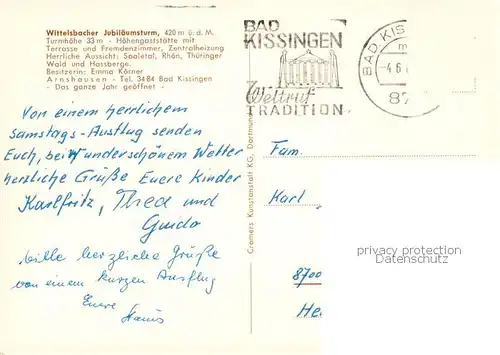 Wittelsbacher Jubiläumsturm, 420 m ü. d. M.
Turmhöhe 33 m - Höhengaststätte mit
Terrasse und Fremdenzimmer, Zentralheizung
Herrliche Aussicht: Saaletal, Rhön, Thüringer
Wald und Hassberge.
Besitzerin: Emma Körner
Arnshausen - Tel. 3484 Bad Kissingen
- Das ganze Jahr geöffnet -
BAD
KISSINGEN
Weltruf
TRADITION
BAD KIS
m
-4.6
87
Von einem herrlichem
Samstags-Ausflug senden
Euch, bei wunderschönem Wetter
herzliche Grüße Euere Kinder
Karlfritz, Thea und
Guido
herzliche Grüße
von einem kurzen Ausflug
Euere
Cremers Kunstanstalt KG, Dortmund
Fam.
Karl
8700
He
privacy protection
Datenschutz